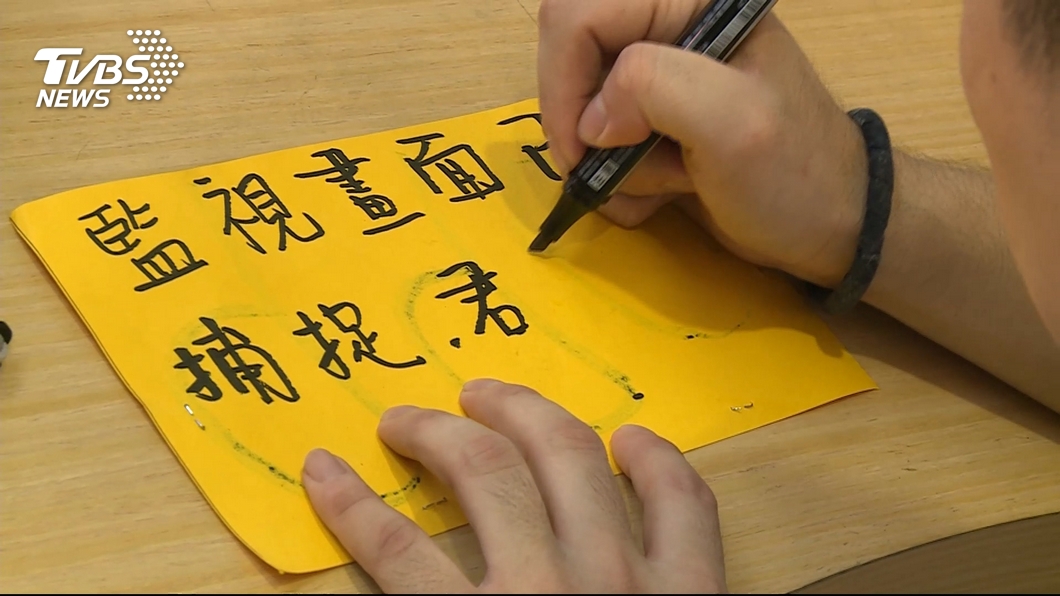 TVBS
NEWS
監視畫面已
捕捉.君